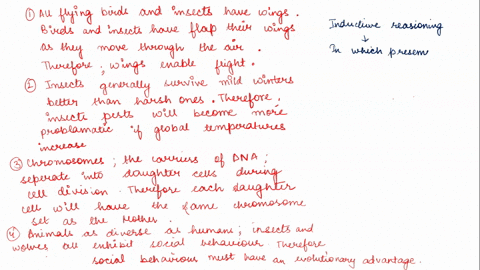 ① All flying birds and insects have wings.
Birds and insects have flap their wings
as they move through the air.
Therefore; wings enable flight.
② Insects generally survive mild winters
better than harsh ones. Therefore,
insect pests will become more
problamatic if global temperatures
increase
③ Chromosomes; the carriers of DNA;
seperate into daughter cells during
cell division. Therefore each daughter
cell will have the same chromosome
set as the Mother.
④ Animals as diverse as humans; insects and
wolves all exhibit social behaviour. Therefore
social behaviour must have an evolutionary advantage.
Inductive reasoning
↓
In which presem